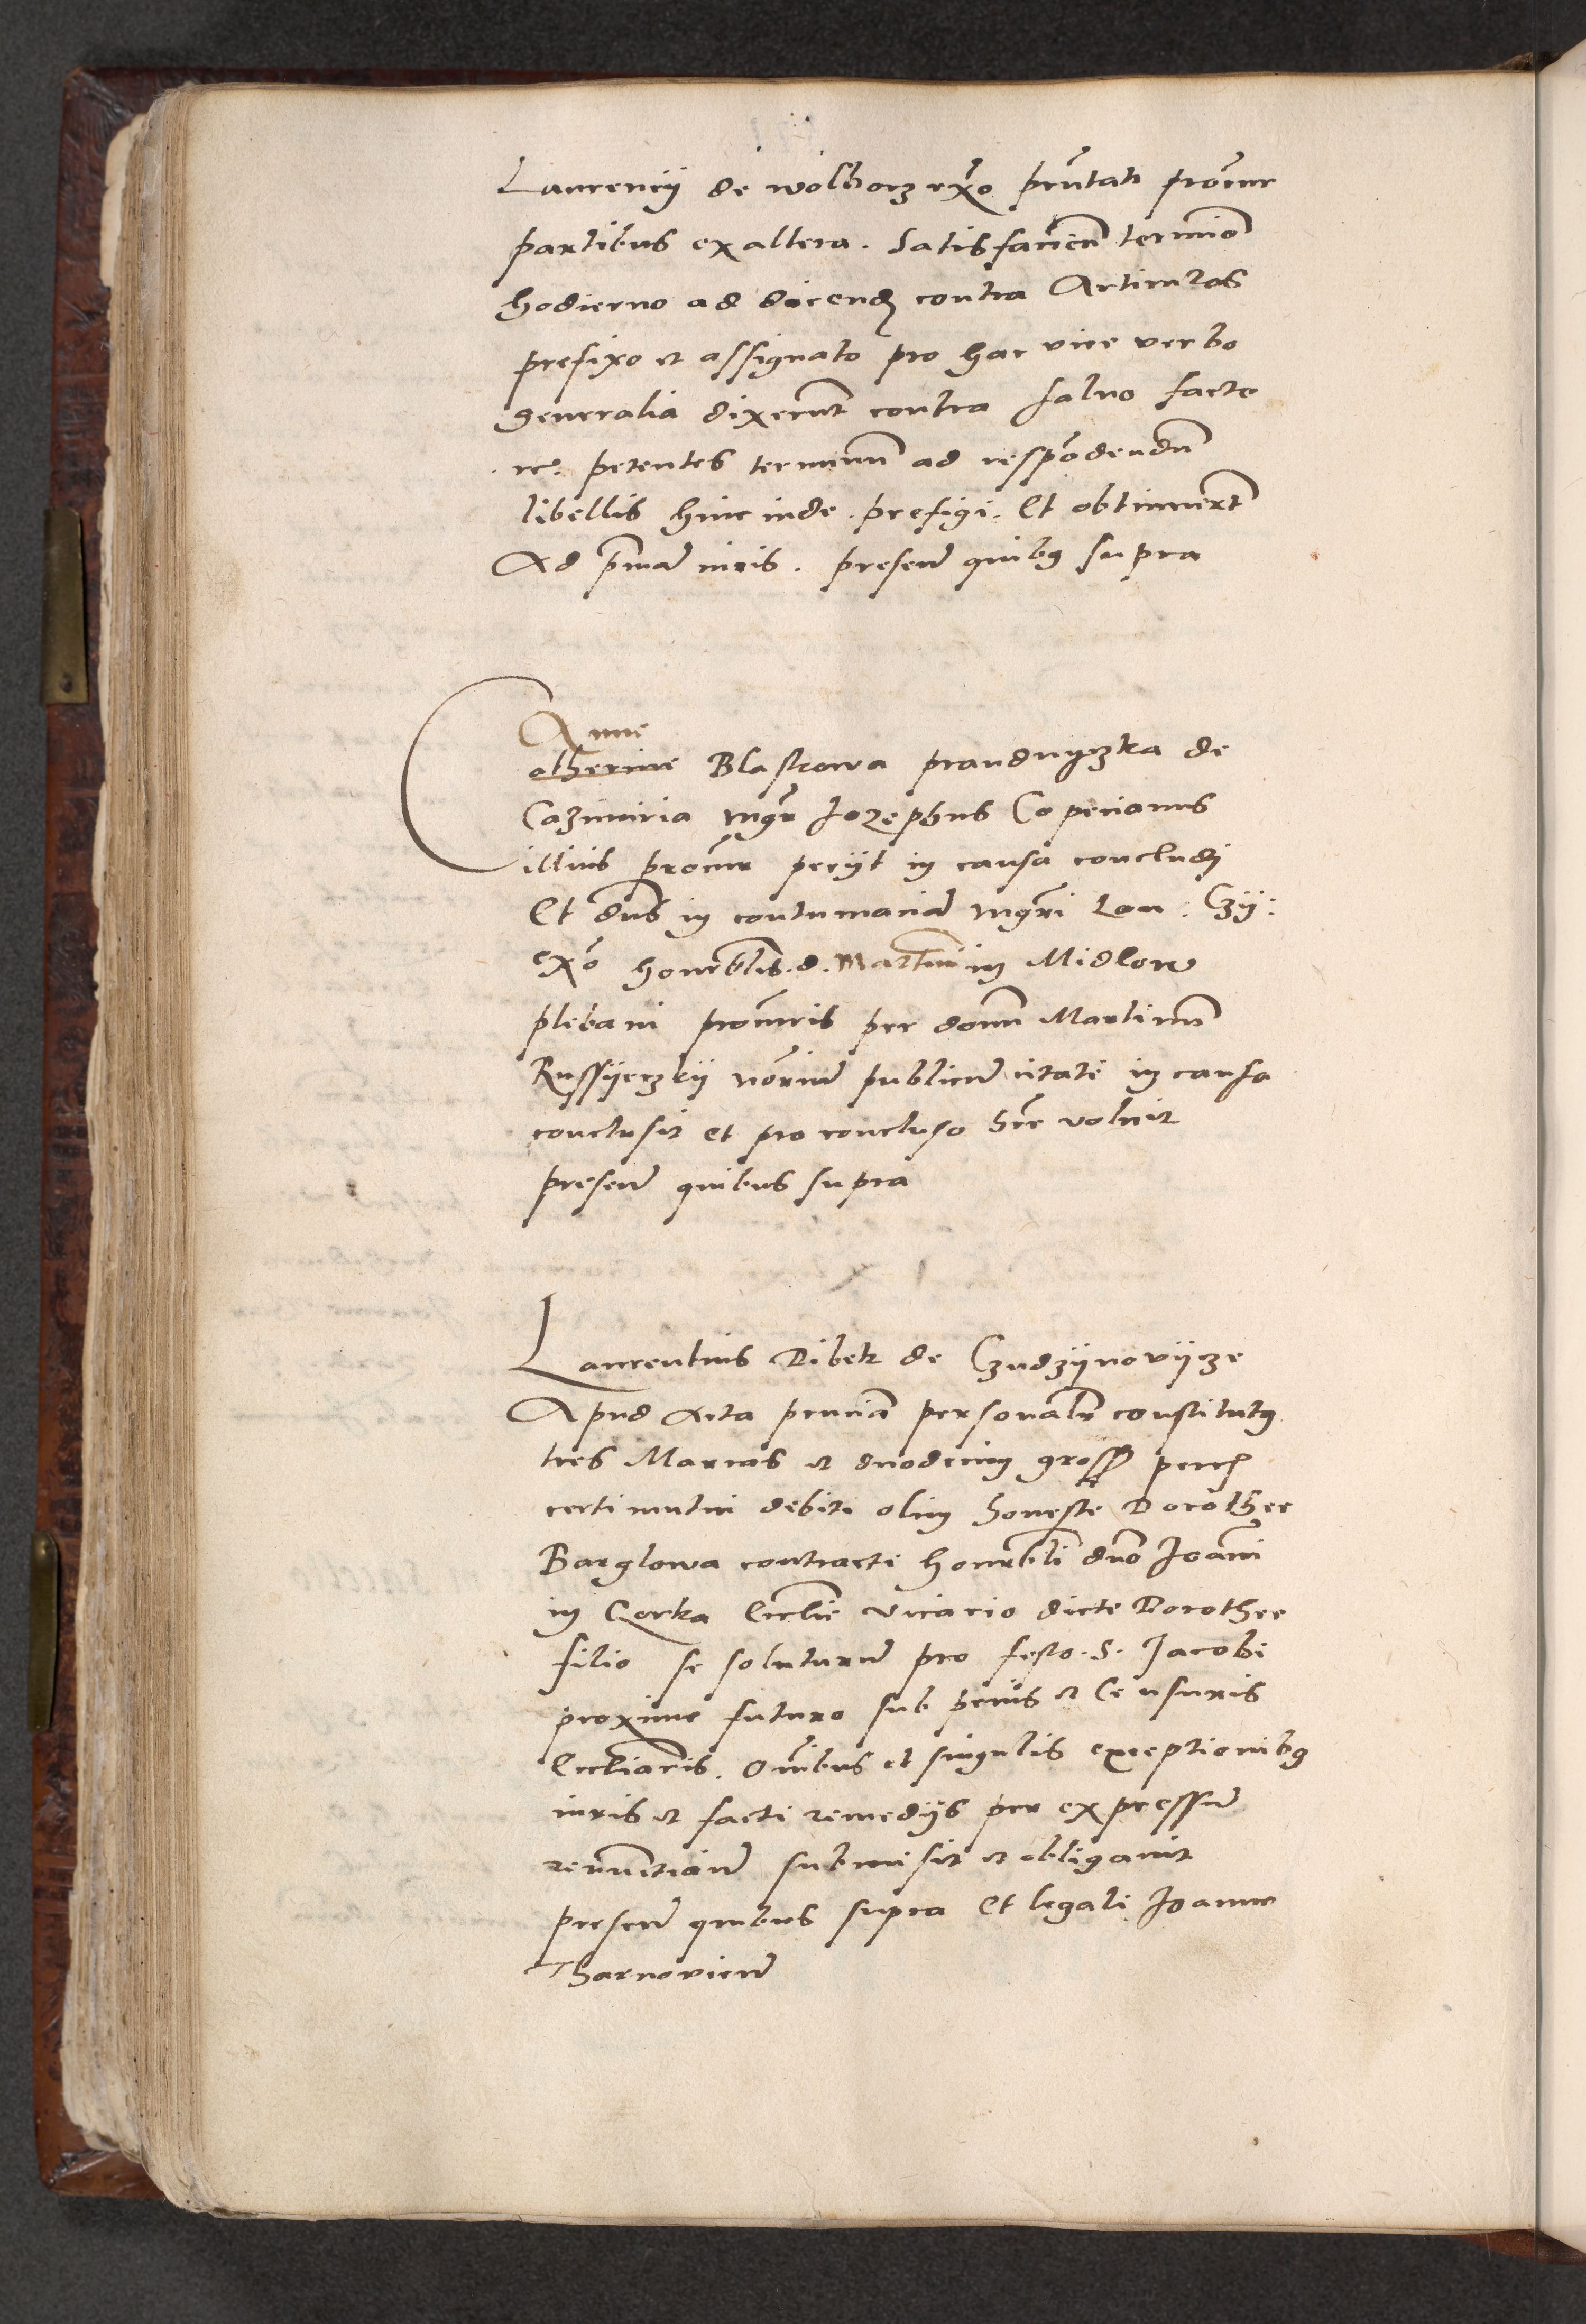 Laurencij de wolborz exo pntati procur
partibus ex altera. Satisfacien termino
hodierno ad dicend contra Articulos
prefixo et assignato pro hac vice verbo
generalia dixerunt contra saluo facto
rc. petentes terminum ad respondendum
libellis hinc inde prefigi. Et obtinuert
Ad primam iuris. presen quibus supra

Anne
Catherine Blaskowa prandnyczka de
Cazimiria mgr Jozephus Copecianus
illius procur peciit in causa concludi
Et dns in contumacia mgri Leon: Czy:
exo honorablis. d. Martini in Midlow
plebani procuris per donum Martinum
Russyeczky notrium publicum citati in causa
conclusit et pro concluso hre voluit
presen quibus supra

Laurentius Dibek de Czudzynovycze
Apud Acta penciam personalr constitutus
tres Marcas et duodecim gross pecu
certi mutui debiti olim honeste Dorothee
Barglowa contracti honorabli dno Joanni
in Gorka Ecclie vicario dicte Dorothee
filio se soluturum pro festo. S. Jacobi
proxime futuro sub penis et Censuris
Eccliacis. Omibus et singulis exceptionibus
iuris et facti remedijs per expressum
renuntian submisit et obligauit
presen quibus supra Et legali Joanne
Tharnovicen